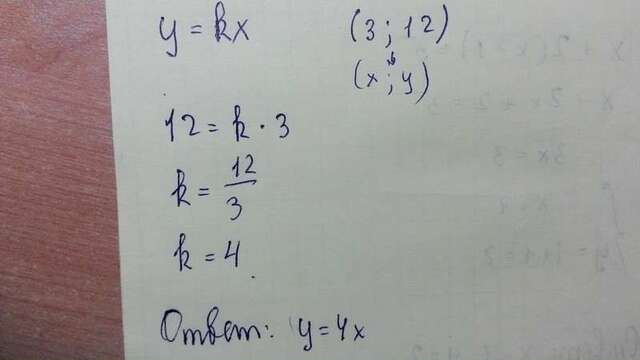 y = kx (3 ; 12)
(x ; y)
12 = k · 3
k = 12/3
k = 4
Ответ: y = 4x